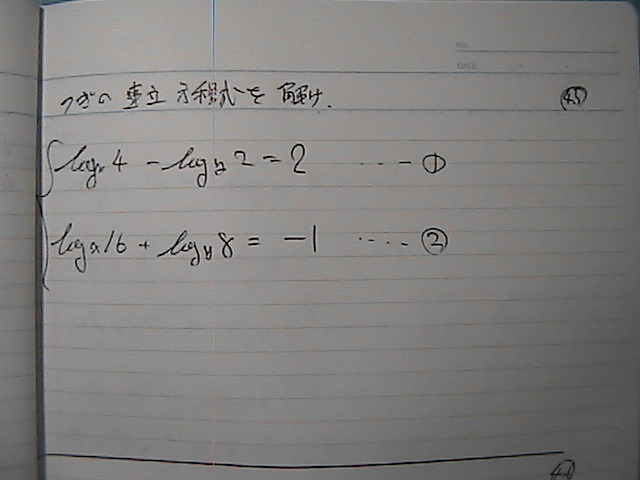 No.
DATE
つぎの連立方程式を解け. 45
log_x 4 - log_y 2 = 2 ···· ①
log_x 16 + log_y 8 = -1 ···· ②